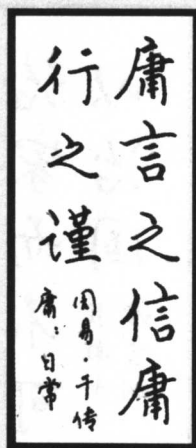 庸言之信庸
行之谨
周易·干传
庸：日常